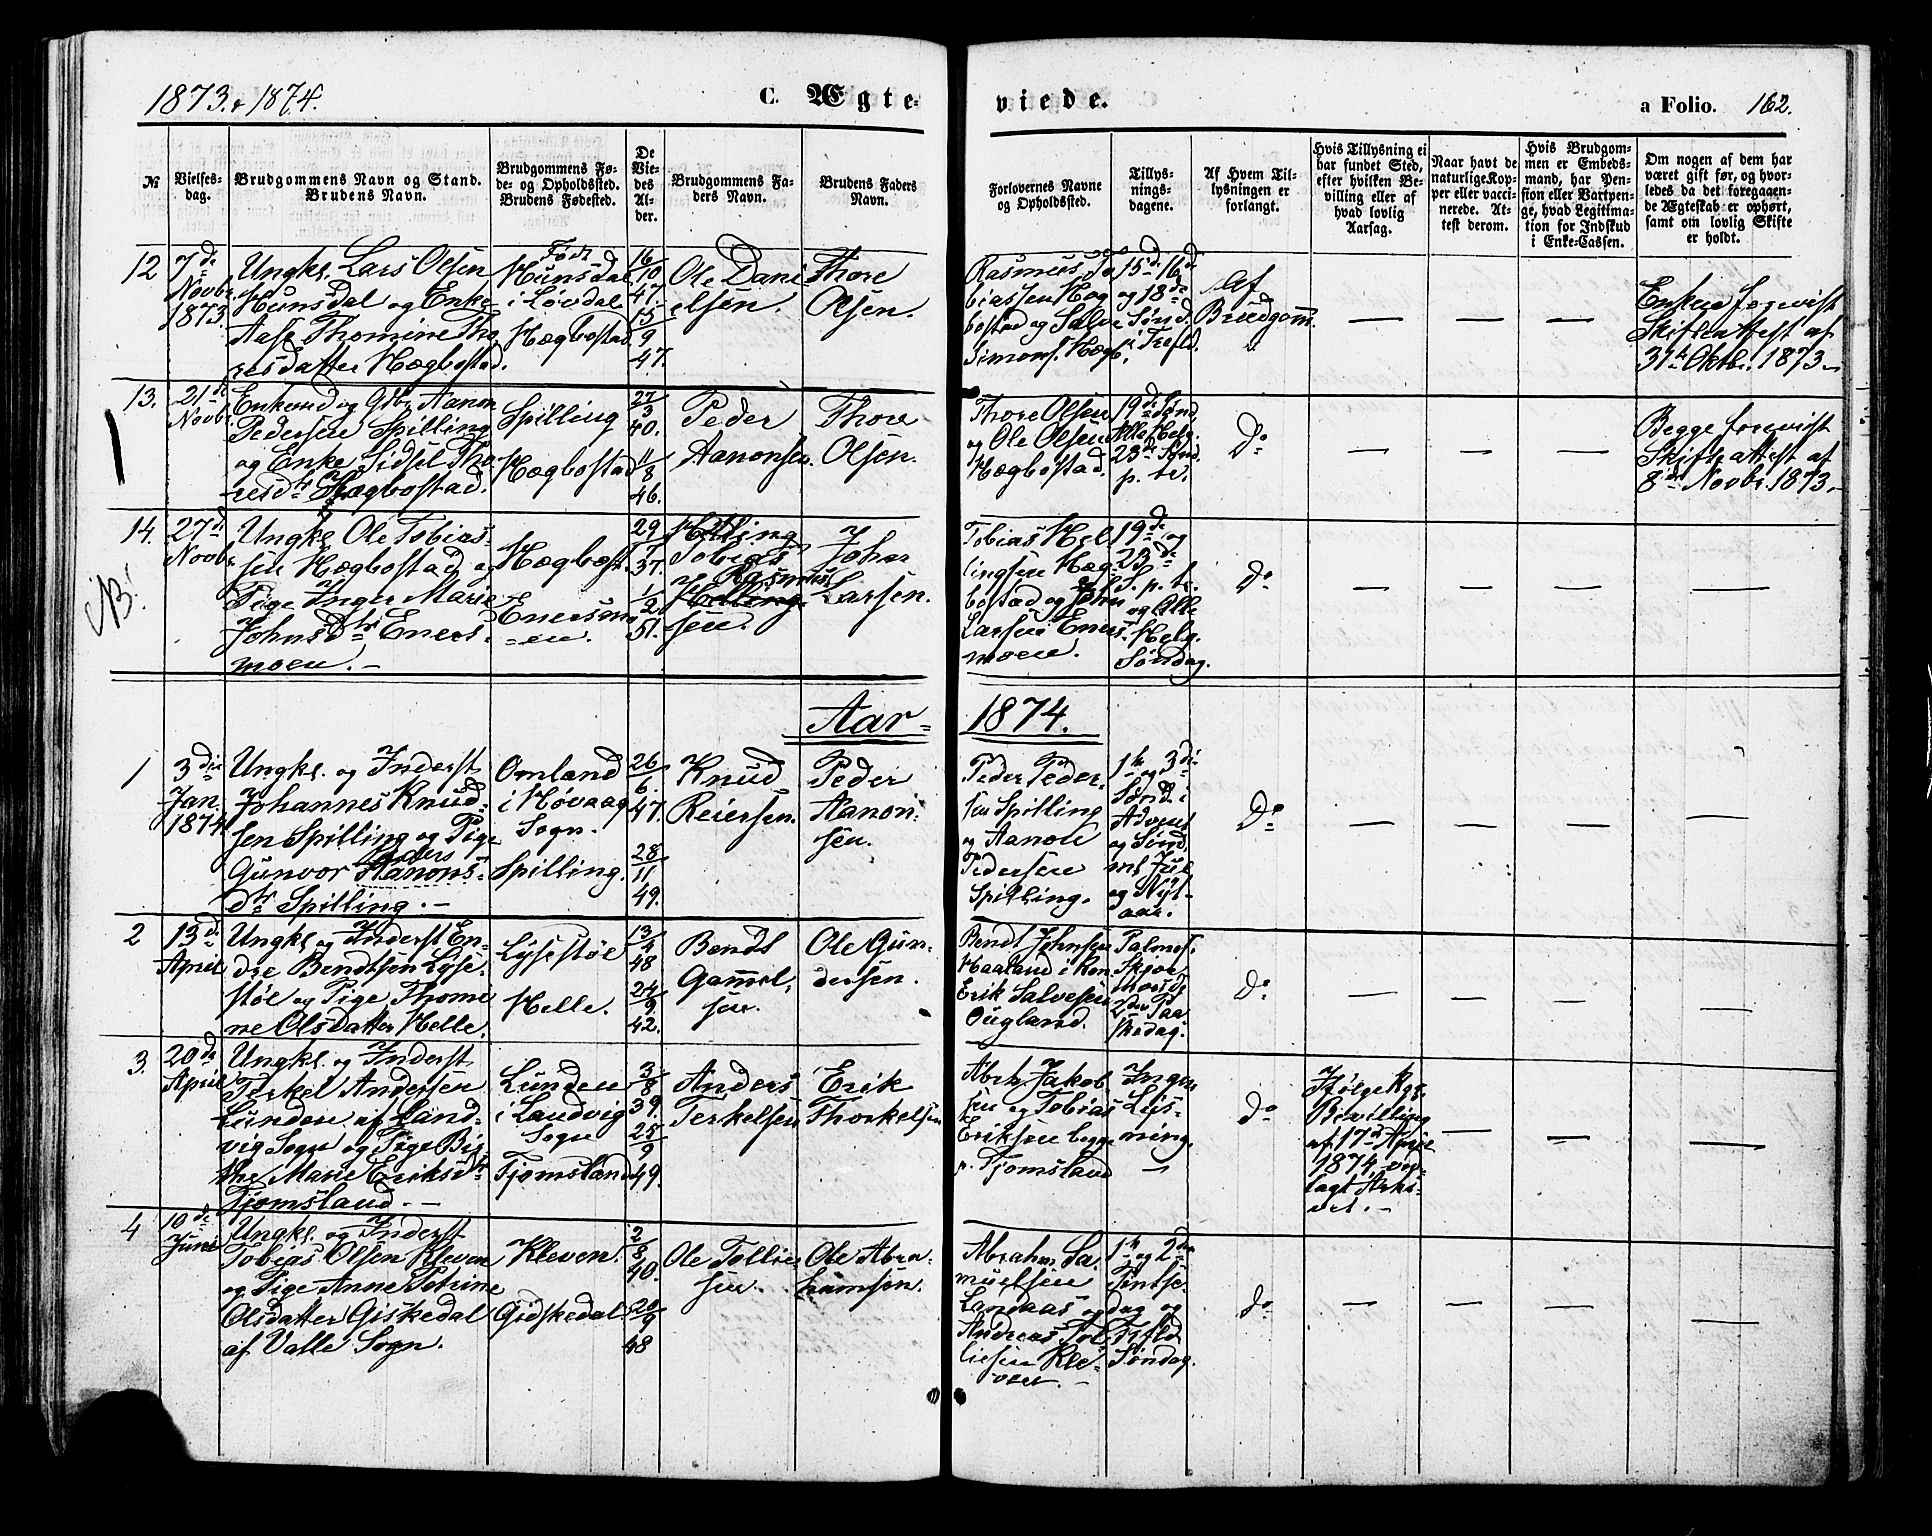 1873. & 1874.
C. Ægte-
viede.
a Folio. 162.
№
Vielses-
dag.
Brudgommens Navn og Stand.
Brudens Navn.
Brudgommens Fø-
de- og Opholdssted.
Brudens Fødested.
De
Vie-
des
Al-
der.
Brudgommens Fa-
ders Navn.
Brudens Faders
Navn.
Forlovernes Navne
og Opholdssted.
Tillys-
nings-
dagene.
Af Hvem Til-
lysningen er
forlangt.
Hvis Tillysning ei
har fundet Sted,
efter hvilken Be-
villing eller af
hvad lovlig
Aarsag.
Naar havt de
naturlige Kop-
per eller vacci-
nerede. At-
test derom.
Hvis Brudgom-
men er Embeds-
mand, har Pen-
sion eller Vartpen-
ge, hvad Legitima-
tion for Indskud
i Enke-Cassen.
Om nogen af dem har
været gift før, og hvor-
ledes da det foregaaen-
de Ægteskab er ophørt,
samt om lovlig Skifte
er holdt.
12
7de
Novbr.
1873.
Ungkl. Lars Olsen
Hunsdal og Enke
Aase Thomine Tho
resdatter Hægbostad.
Født
Hunsdal
i Løvdal
Hægbostad
16/10
47.
15/9
47.
Ole Dani
elsen.
Thore
Olsen.
Rasmus To
biassen Hæg
bostad og Salve
Simons. Hægb.
15d. 16d.
og 18de
Sønd.
i Trefld.
Af
Brudgom.
— — —
Enken forevist
Skifteattest af
31te Oktbr. 1873 –
13.
21de
Novbr.
Enkemd og Gbr. Aanon
Pedersen Spilling
og Enke Sidsel Tho
resdtr Hægbostad.
Spilling
Hægbostad
27/3
40.
11/8
46.
Peder
Aanonsen.
Thore
Olsen.
Thore Olsen
og Ole Olsen
Hægbostad.
19de Sønd.
Alle Helg.
23de Sønd.
p. tr.
Do
— — —
Begge forevist
Skifteattest af
8de Novbr. 1873 –
NB!
14.
27de
Novbr.
Ungkl. Ole Tobias-
sen Hægbostad og
Pige Inger Marie
Johnsdtr Eners-
moen. –
Hægbost.
Enersmo
-en.
29
37.
1/2
51.
Helling
Tobias
Rasmus
Helling-
sen.
John
Larsen.
Tobias Hel
lingsen Hæg
bostad og John
Larsen Eners-
moen.
19de og
23de
S. p. tr.
og Alle
Helg.
Søndag.
Do
— — — —
Aar 1874.
1
3die
Jan.
1874
Ungkl. og Inderst
Johannes Knud-
sen Spilling og Pige
Gunvor Peders
Aanons-
dtr Spilling. –
Omland
i Høvaag
Sogn.
Spilling.
26/6.
47.
28/11
49.
Knud
Reiersen.
Peder
Aanon-
sen.
Peder Peder-
sen Spilling
og Aanon
Pedersen
Spilling.
1te og 3die
Sønd. i
Advent
og Sønd.
ml. Jul
og Nyt-
aar.
Do
— — — —
2
13de
April
Ungkl. og Inderst En-
dre Bendtsen Lyse-
støl og Pige Thomi
ne Olsdatter Helle.
Lysestøl
Helle.
13/4
48
24/9.
42.
Bendt
Gammel-
sen.
Ole Gun-
dersen.
Bendt Johnsen
Haaland
Erik Salvesen
Ougland.
Palmes.
Skjær
torsd.
2den Paa
skedag.
Do
— — — —
3.
20de
April
Ungkl. og Inderst
Terkel Andersen
Lunden af Land-
vig Sogn og Pige Bir-
the Marie Eriksdtr
Tjomsland. –
Lunden
i Landvig
Sogn
Tjomsland
3/8
39.
25/9
49.
Anders
Terkelsen
Erik
Thorkelsen
Abrh. Jakob
sen og Tobias
Eriksen begge
p. Tjomsland
Ingen
Lys-
ning.
–
Do
Ifølge Kgl.
Bevilling
af 17de April
1874 ved-
lagt Arki-
vet. –
— — —
4
10de
Juni
Ungkl. og Inderst
Tobias Olsen Kleven
og Pige Anne Petrine
Olsdatter Giskedal
af Valle Sogn.
Kleven.
Gidskedal
2/3
40.
20/9
48
Ole Tollie
sen.
Ole Abra
hamsen.
Abraham Sa-
muelsen
Landaas og
Andreas Tol-
liesen Kle-
ven. –
1te og 2den
Pintse-
dag og
Trefld
Søndag.
Do
— — — —